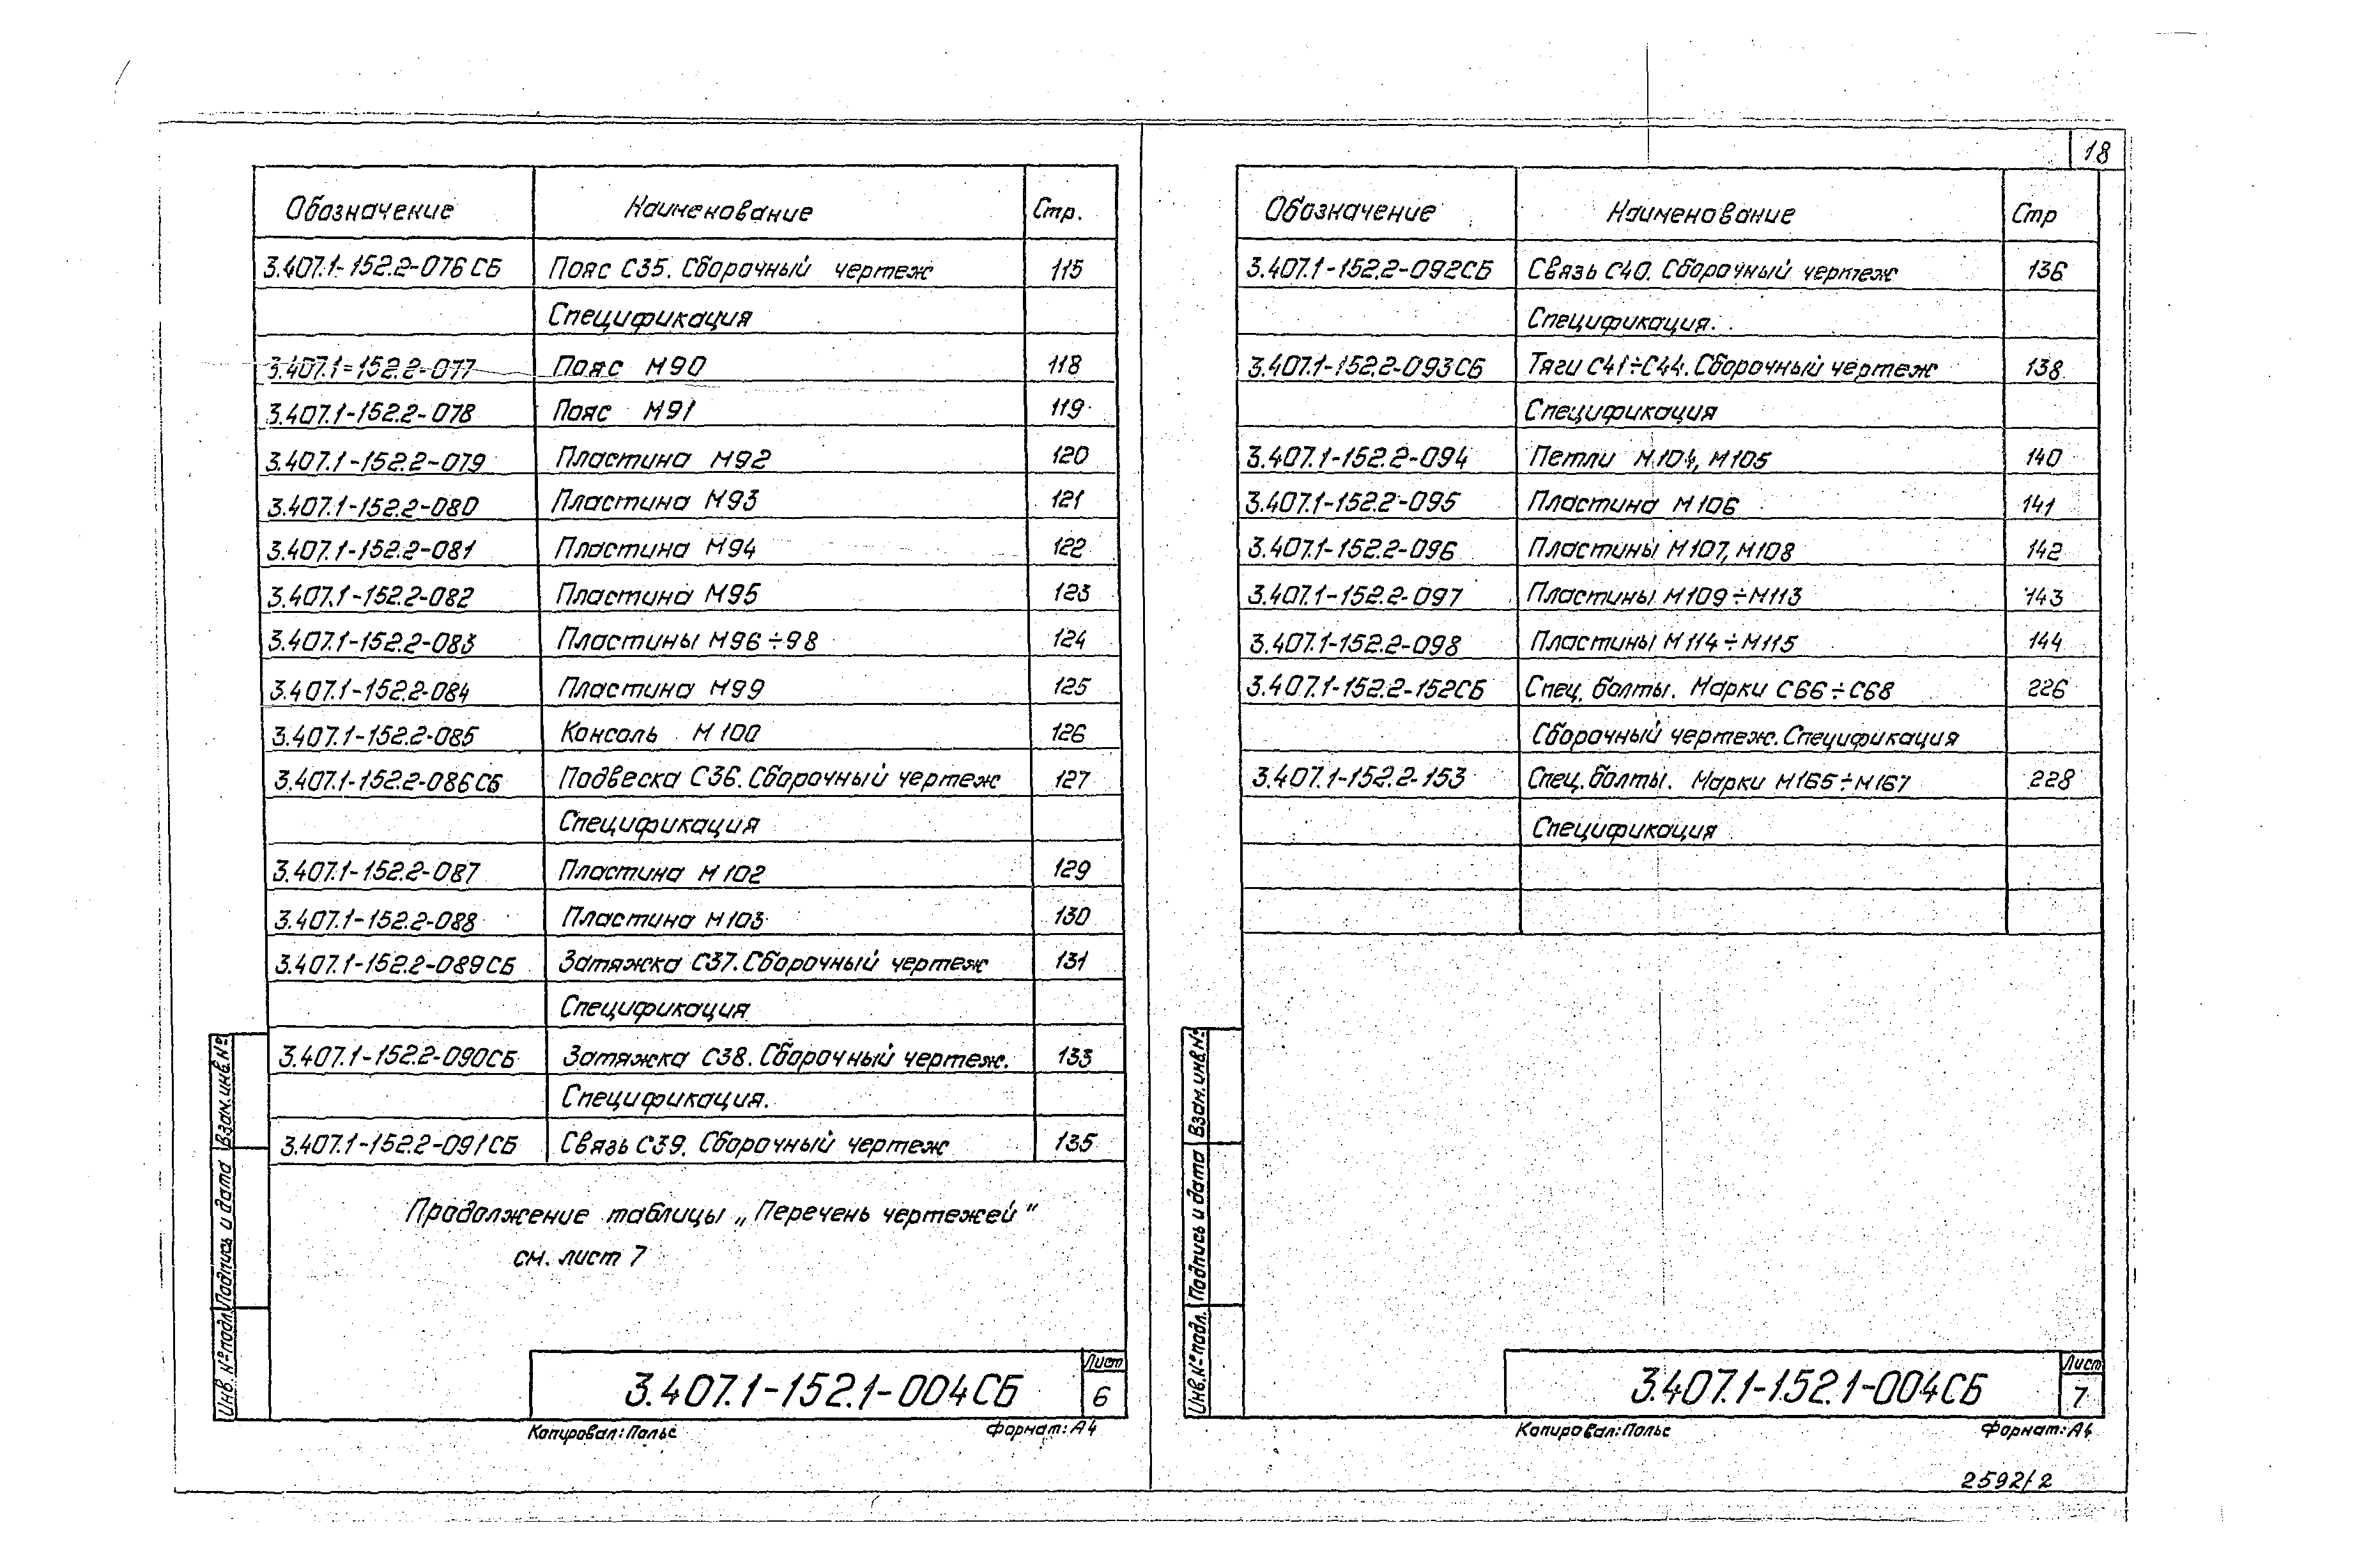 18
Обозначение Наименование Стр.
3.407.1-152.2-076СБ Пояс С35. Сборочный чертеж 115
Спецификация
3.407.1-152.2-077 Пояс М90 118
3.407.1-152.2-078 Пояс М91 119
3.407.1-152.2-079 Пластина М92 120
3.407.1-152.2-080 Пластина М93 121
3.407.1-152.2-081 Пластина М94 122
3.407.1-152.2-082 Пластина М95 123
3.407.1-152.2-083 Пластины М96÷98 124
3.407.1-152.2-084 Пластина М99 125
3.407.1-152.2-085 Консоль М100 126
3.407.1-152.2-086СБ Подвеска С36. Сборочный чертеж 127
Спецификация
3.407.1-152.2-087 Пластина М102 129
3.407.1-152.2-088 Пластина М103 130
3.407.1-152.2-089СБ Затяжка С37. Сборочный чертеж 131
Спецификация
3.407.1-152.2-090СБ Затяжка С38. Сборочный чертеж. 133
Спецификация.
3.407.1-152.2-091СБ Связь С39. Сборочный чертеж 135
Продолжение таблицы „Перечень чертежей"
см. лист 7
Инв. №подл. Подпись и дата Взам. инв. №
3.407.1-152.1-004СБ
Лист
6
Копировал: Полье Формат: А4
Обозначение Наименование Стр
3.407.1-152.2-092СБ Связь С40. Сборочный чертеж 136
Спецификация.
3.407.1-152.2-093СБ Тяги С41÷С44. Сборочный чертеж 138
Спецификация
3.407.1-152.2-094 Петли М104, М105 140
3.407.1-152.2-095 Пластина М106 141
3.407.1-152.2-096 Пластины М107, М108 142
3.407.1-152.2-097 Пластины М109÷М113 143
3.407.1-152.2-098 Пластины М114÷М115 144
3.407.1-152.2-152СБ Спец. болты. Марки С66÷С68 226
Сборочный чертеж. Спецификация
3.407.1-152.2-153 Спец. болты. Марки М165÷М167 228
Спецификация
Инв. №подл. Подпись и дата Взам. инв. №
3.407.1-152.1-004СБ
Лист
7
Копировал: Полье Формат: А4
2592/2